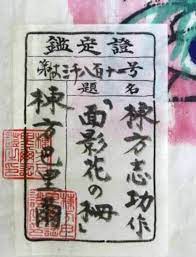 鑑定證
第三千八百十一号
題名
棟方志功作
『面影花の柵』
棟方巴里爾